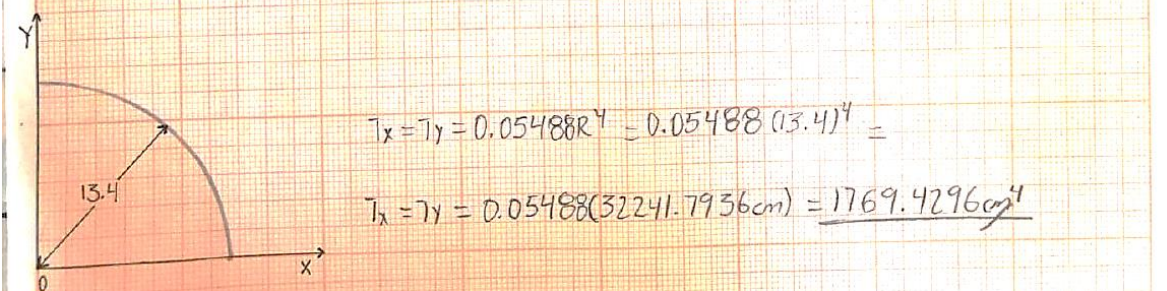 Y
Ix = Iy = 0.05488R⁴ = 0.05488 (13.4)⁴ =
13.4
Ix = Iy = 0.05488(32241.7936cm) = 1769.4296cm⁴
X
0